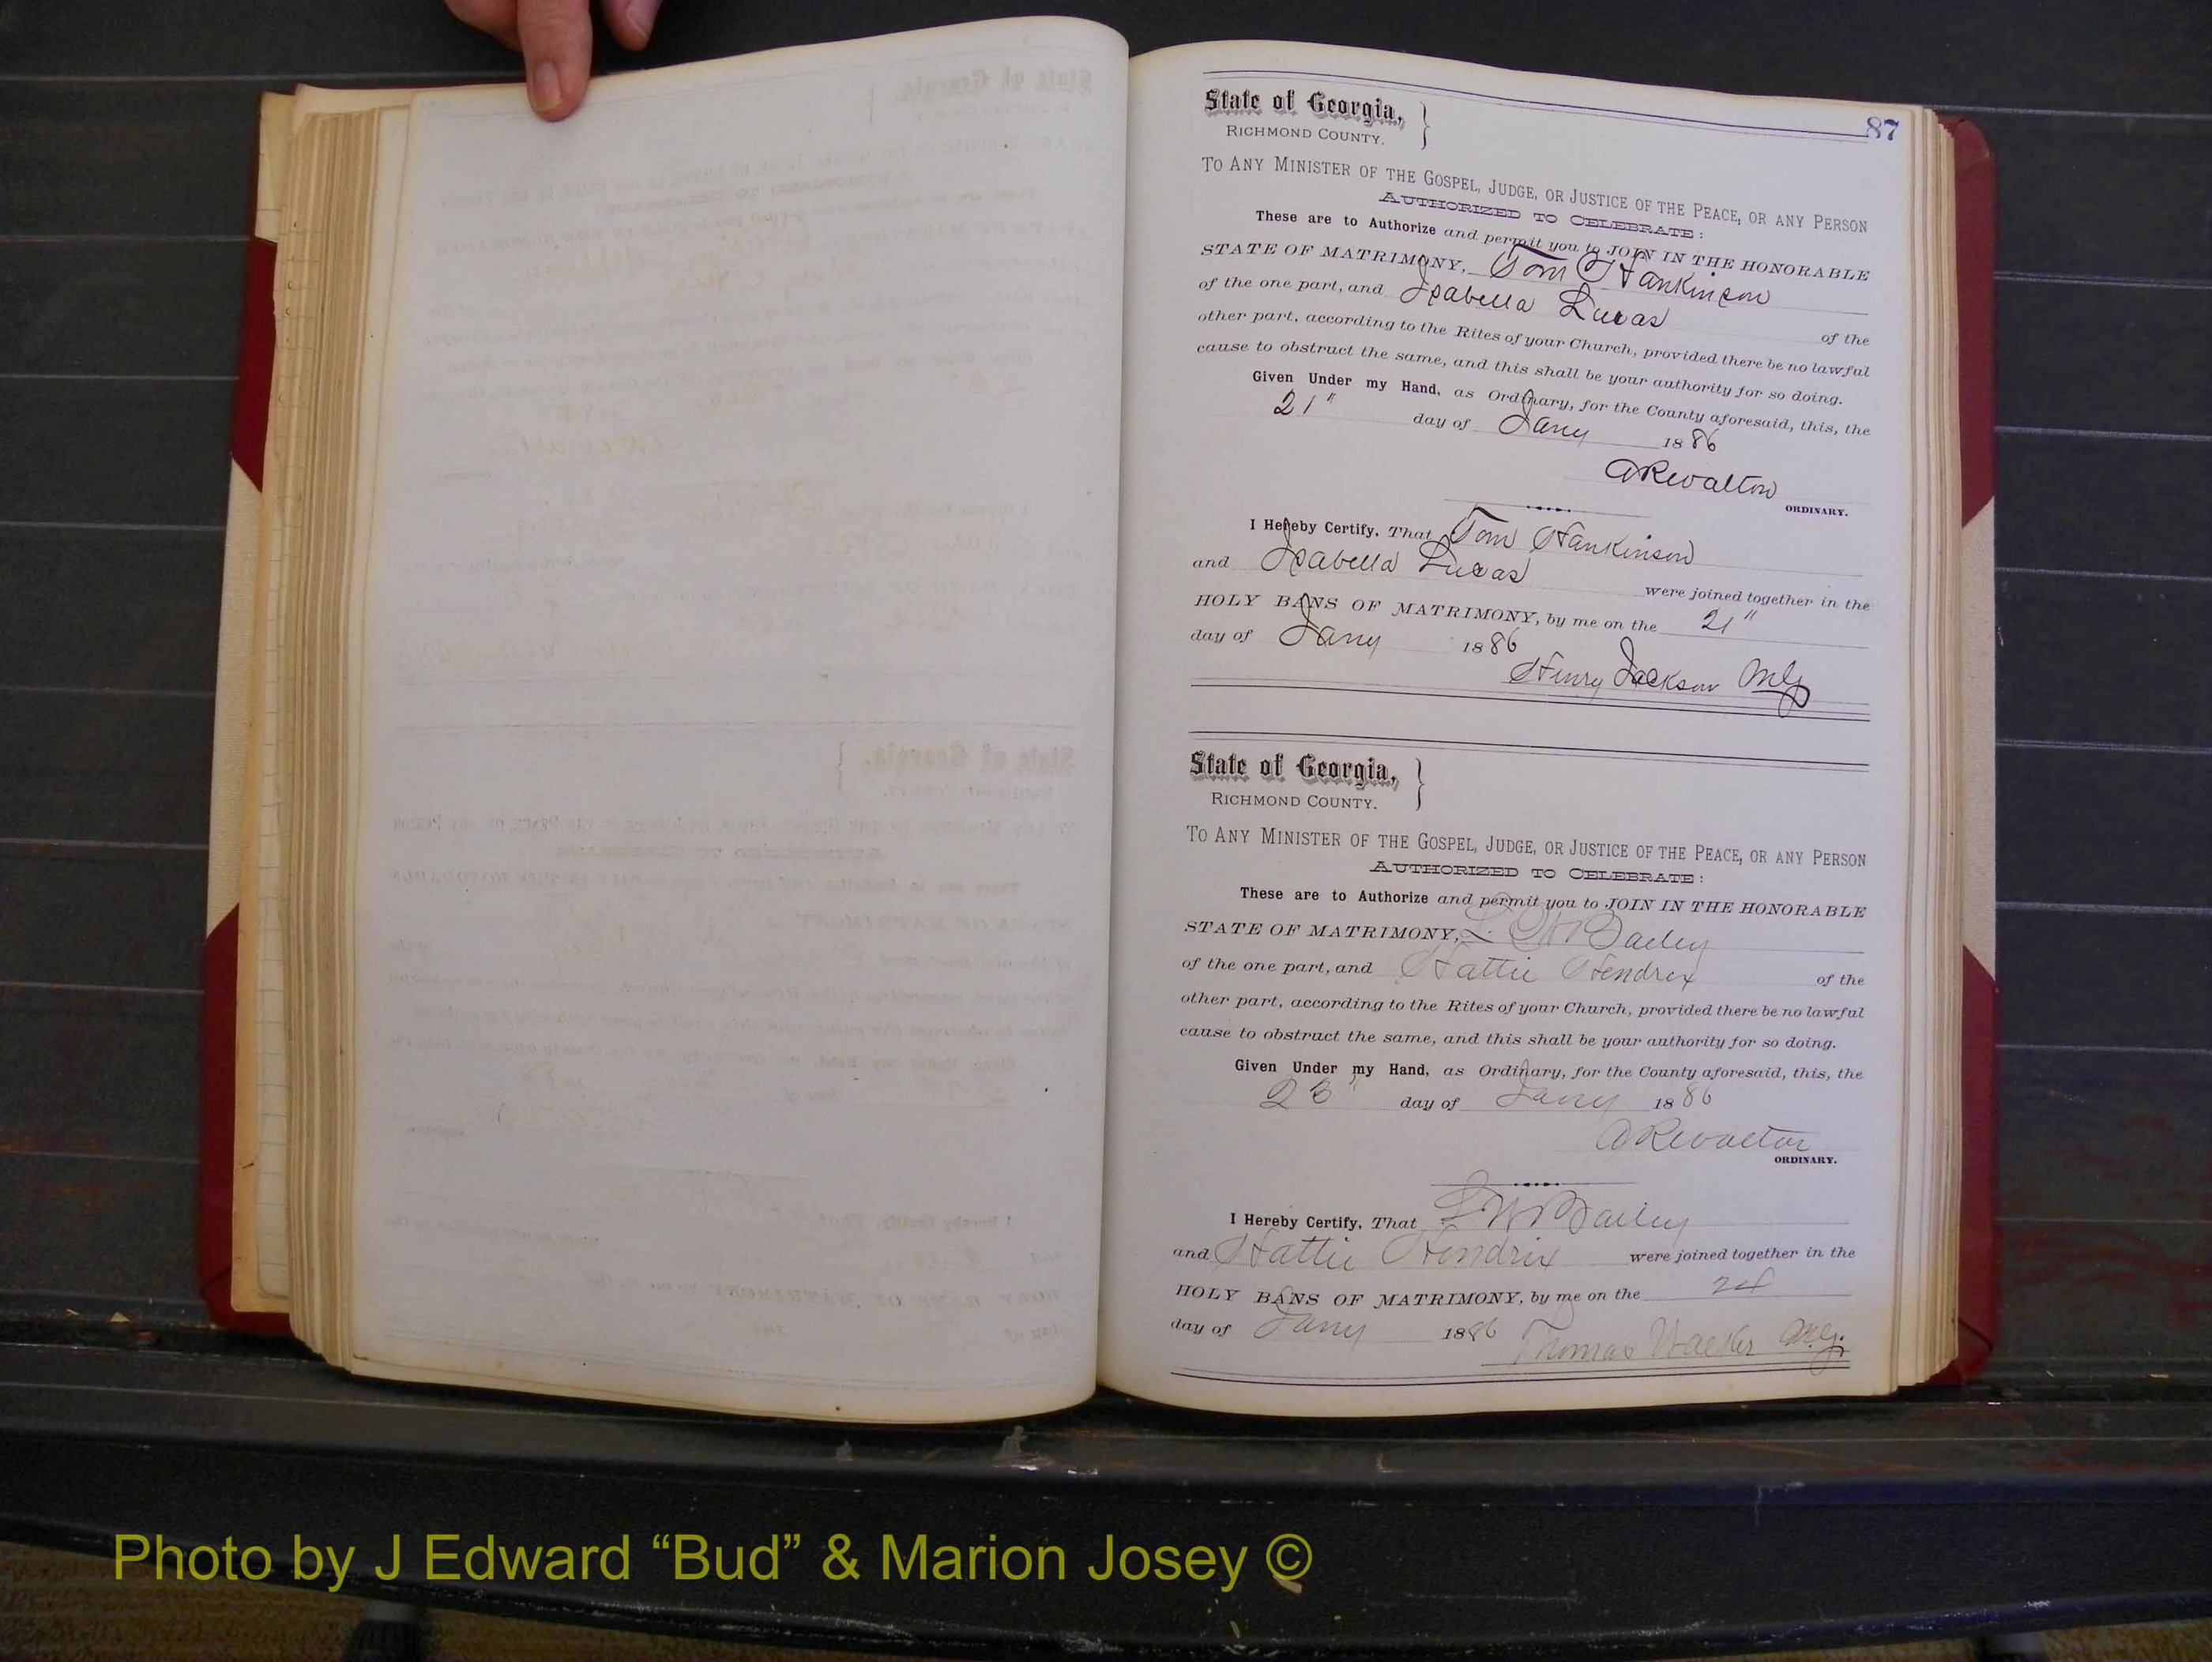 87
State of Georgia,
RICHMOND COUNTY.
TO ANY MINISTER OF THE GOSPEL, JUDGE, OR JUSTICE OF THE PEACE, OR ANY PERSON
AUTHORIZED TO CELEBRATE:
These are to Authorize and permit you to JOIN IN THE HONORABLE
STATE OF MATRIMONY, Tom Hankinson
of the one part, and Isabella Lucas of the
other part, according to the Rites of your Church, provided there be no lawful
cause to obstruct the same, and this shall be your authority for so doing.
Given Under my Hand, as Ordinary, for the County aforesaid, this, the
21" day of Jany 1886
A R Walton
ORDINARY.
I Hereby Certify, That Tom Hankinson
and Isabella Lucas were joined together in the
HOLY BANS OF MATRIMONY, by me on the 21"
day of Jany 1886
Henry Jackson M.G.
State of Georgia,
RICHMOND COUNTY.
TO ANY MINISTER OF THE GOSPEL, JUDGE, OR JUSTICE OF THE PEACE, OR ANY PERSON
AUTHORIZED TO CELEBRATE:
These are to Authorize and permit you to JOIN IN THE HONORABLE
STATE OF MATRIMONY, W Bailey
of the one part, and Hattie Hendrix of the
other part, according to the Rites of your Church, provided there be no lawful
cause to obstruct the same, and this shall be your authority for so doing.
Given Under my Hand, as Ordinary, for the County aforesaid, this, the
23" day of Jany 1886
A R Walton
ORDINARY.
I Hereby Certify, That W Bailey
and Hattie Hendrix were joined together in the
HOLY BANS OF MATRIMONY, by me on the 24
day of Jany 1886
Thomas Walker M.G.
Photo by J Edward “Bud” & Marion Josey ©